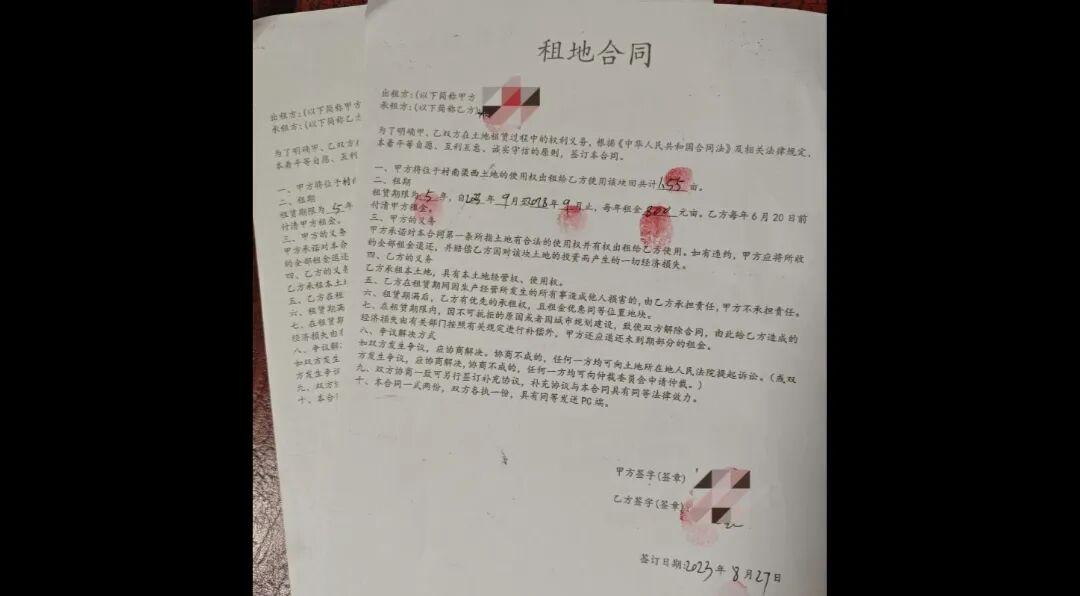 租地合同
出租方:(以下简称甲方
承租方:(以下简称乙方)
为了明确甲、乙双方在土地租赁过程中的权利义务,根据《中华人民共和国合同法》及相关法律规定,
本着平等自愿、互利互惠、诚实守信的原则,签订本合同。
一、甲方将位于村南渠西土地的使用权出租给乙方使用该块田共计1.55亩。
二、租期
租赁期限为5年,自2023年9月至2028年9月止,每年租金800元亩。乙方每年6月20日前
付清甲方租金。
三、甲方的义务
甲方承诺对本合同第一条所指土地有合法的使用权并有权出租给乙方使用。如有违约,甲方应将所收
的全部租金退还,并赔偿乙方因对该块土地的投资而产生的一切经济损失。
四、乙方的义务
乙方承租本土地,具有本土地经营权、使用权。
五、乙方在租赁期间因生产经营所发生的所有事造成他人损害的,由乙方承担责任,甲方不承担责任。
六、租赁期满后,乙方有优先的承租权,且租金优惠同等位置地块。
七、在租赁期限内,因不可抗拒的原因或者因城市规划建设,致使双方解除合同,由此给乙方造成的
经济损失由有关部门按照有关规定进行补偿外,甲方还应退还未到期部分的租金。
八、争议解决方式
如双方发生争议,应协商解决。协商不成的,任何一方均可向土地所在地人民法院提起诉讼。(或双
方发生争议,应协商解决,协商不成的,任何一方均可向仲裁委员会申请仲裁。)
九、双方协商一致可另行签订补充协议,补充协议与本合同具有同等法律效力。
十、本合同一式两份,双方各执一份,具有同等发送PC端。
甲方签字(签章)
乙方签字(签章)
签订日期:2023年8月27日
出租方:(以下简称甲方
承租方:(以下简称乙
为了明确甲、乙双方在
本着平等自愿、互利
一、甲方将位于村
二、租期
租赁期限为5年
付清甲方租金。
三、甲方的义务
甲方承诺对本合
的全部租金退还
四、乙方的义务
乙方承租本土
五、乙方在租
六、租赁期满
七、在租赁期
经济损失由
八、争议解
如双方发生
方发生争议
九、双方
十、本合